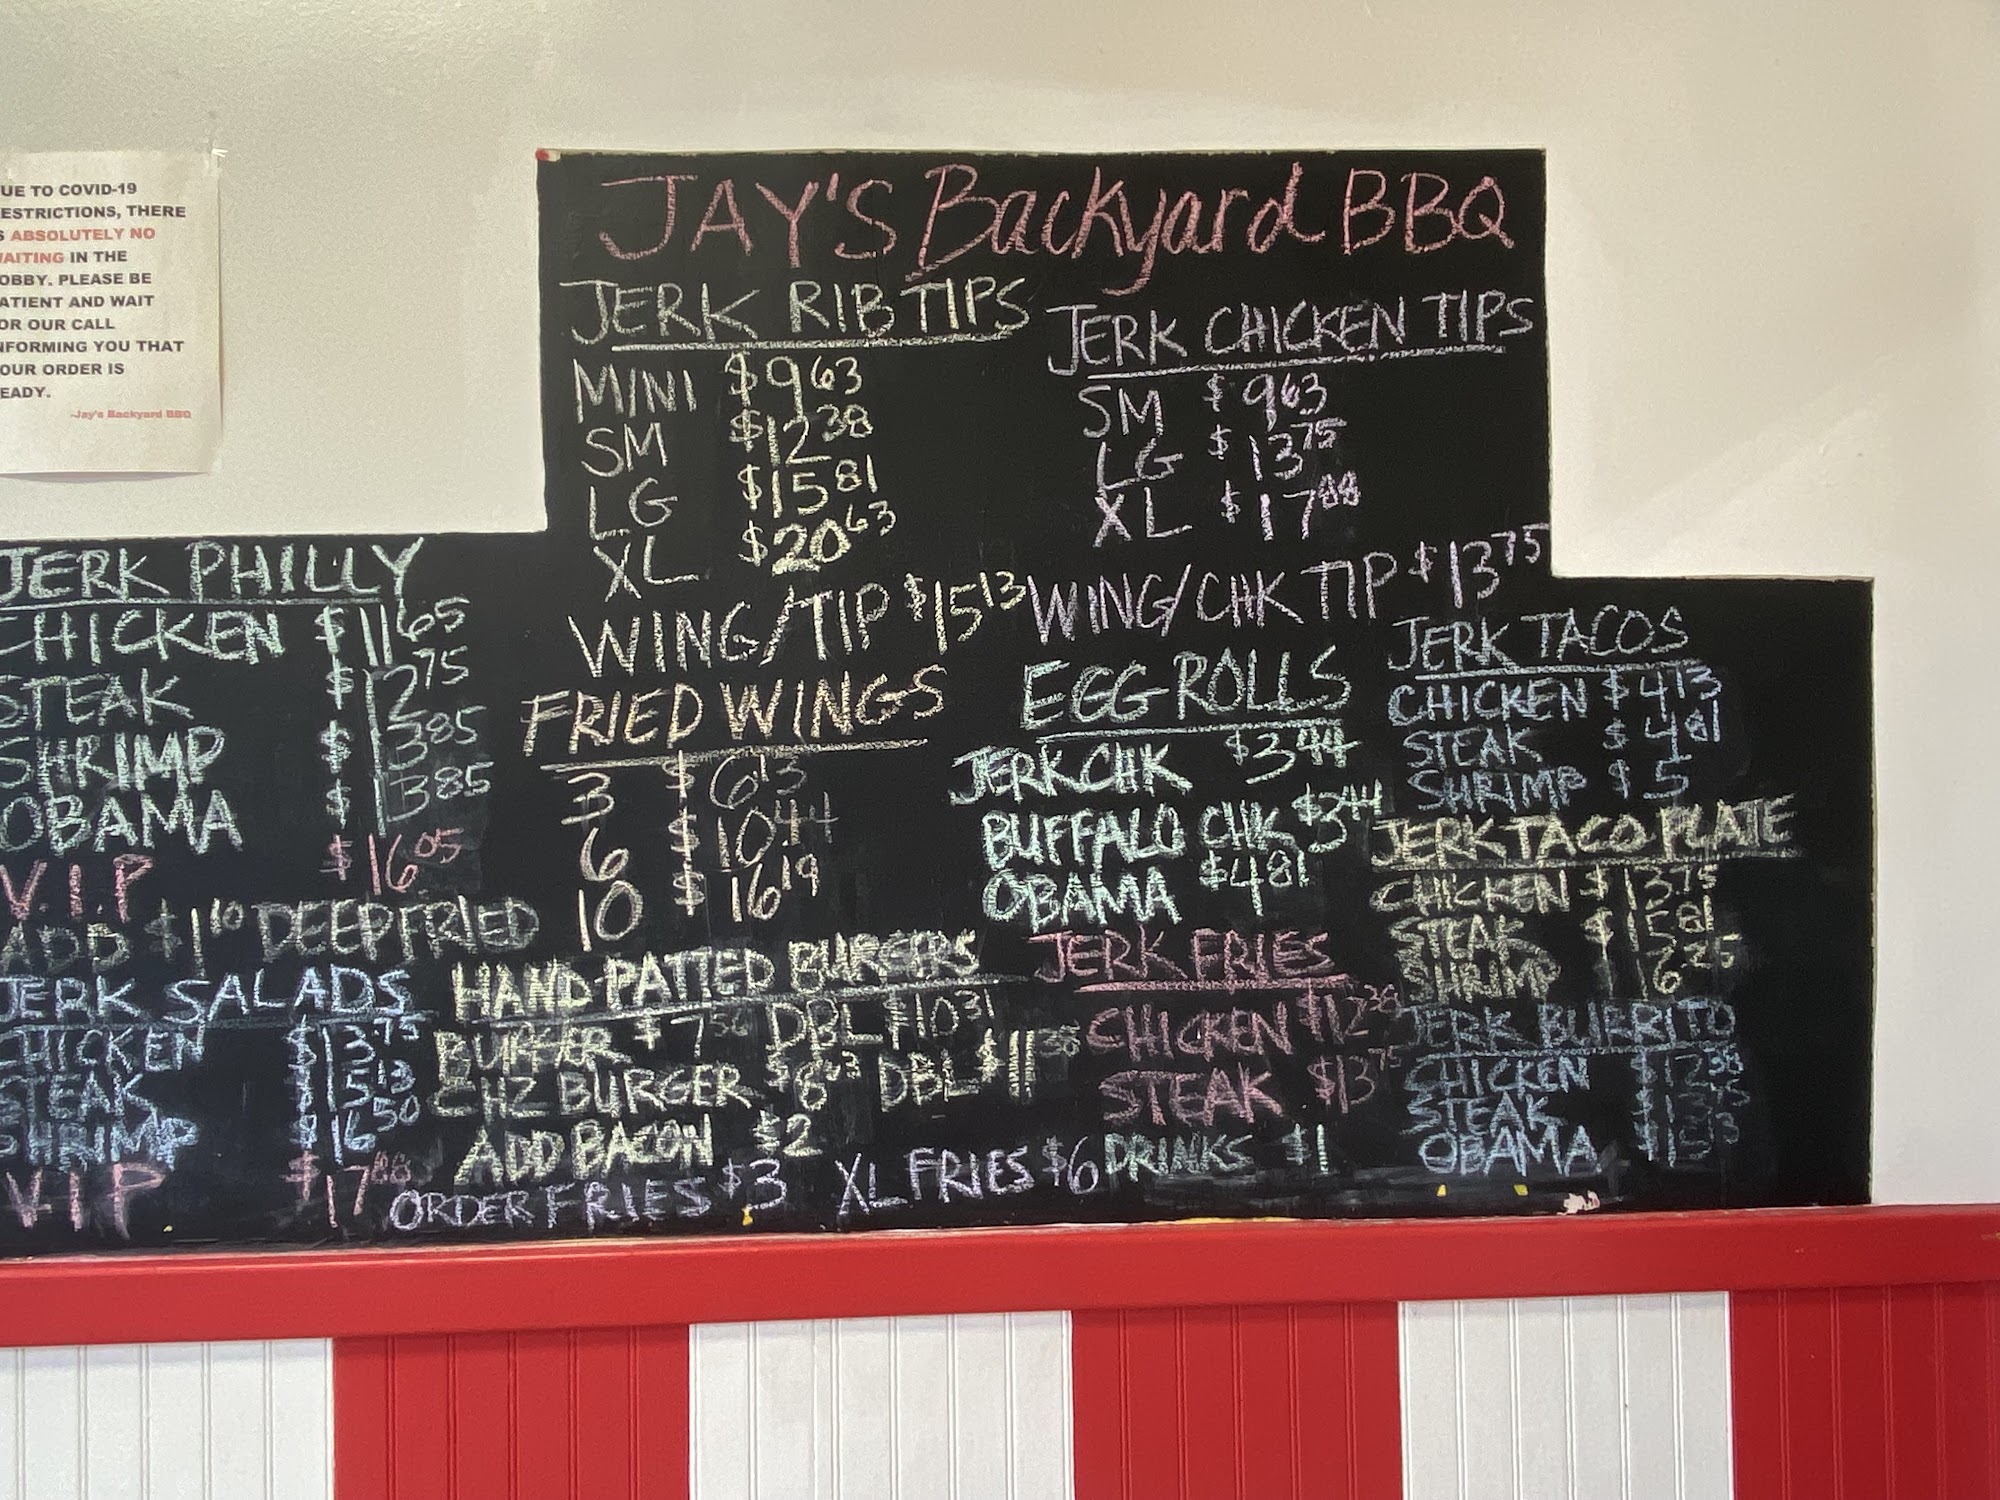 UE TO COVID-19
ESTRICTIONS, THERE
S ABSOLUTELY NO
WAITING IN THE
OBBY. PLEASE BE
ATIENT AND WAIT
OR OUR CALL
NFORMING YOU THAT
OUR ORDER IS
EADY.
-Jay's Backyard BBQ
JAY'S Backyard BBQ
JERK RIB TIPS
MINI $9.63
SM $12.38
LG $15.81
XL $20.63
WING/TIP $15.13
JERK CHICKEN TIPS
SM $9.63
LG $13.75
XL $17.88
WING/CHK TIP $13.75
JERK PHILLY
CHICKEN $11.65
STEAK $12.75
SHRIMP $13.85
OBAMA $13.85
V.I.P $16.05
ADD $1.10 DEEP FRIED
FRIED WINGS
3 $6.13
6 $10.44
10 $16.19
EGG ROLLS
JERK CHK $3.44
BUFFALO CHK $3.44
OBAMA $4.81
JERK TACOS
CHICKEN $4.13
STEAK $4.81
SHRIMP $5
JERK TACO PLATE
CHICKEN $13.75
STEAK $15.81
SHRIMP 16.25
JERK SALADS
CHICKEN $13.75
STEAK $15.13
SHRIMP $16.50
V.I.P $17.88
HAND PATTED BURGERS
BURGER $7.56 DBL $10.31
CHZ BURGER DBL $11
ADD BACON $2
ORDER FRIES $3 XL FRIES $6
JERK FRIES
CHICKEN $12.38
STEAK $13.75
DRINKS $1
JERK BURRITO
CHICKEN $12.38
STEAK $13.75
OBAMA $15.13